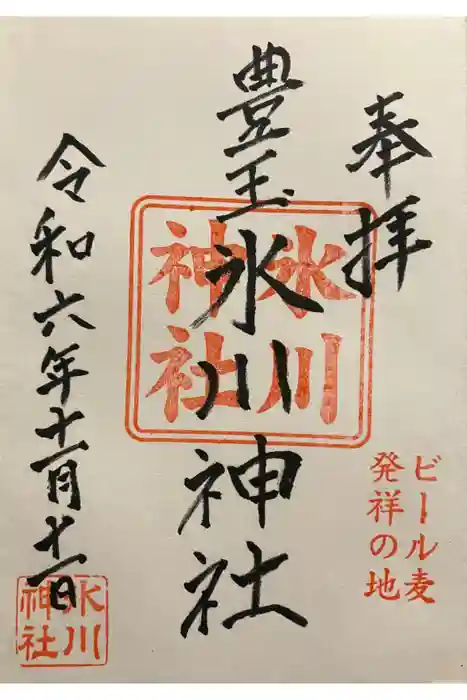 奉拝
豊玉氷川神社
氷川
神社
ビール麦
発祥の地
令和六年十一月十一日
氷川
神社